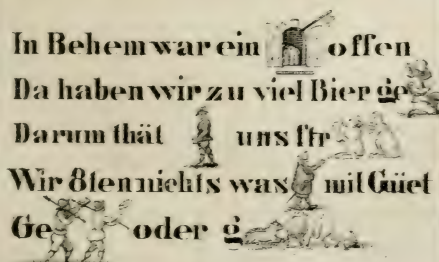 In Behem war ein offen
Da haben wir zu viel Bier ge
Darum thät uns ftr
Wir 8ten nichts was mit Güet
Ge oder g